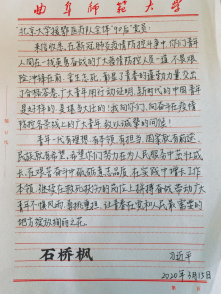 曲阜师范大学
北京大学援鄂医疗队全体"90后"党员:
来信收悉。在新冠肺炎疫情防控斗争中,你们青年
人同在一线英勇奋战的广大疫情防控人员一道,不畏艰
险、冲锋在前、舍生忘死,彰显了青春的蓬勃力量,交出
了合格答卷。广大青年用行动证明,新时代的中国青年
是好样的,是堪当大任的!我向你们、向奋斗在疫情
防控各条战线上的广大青年,致以诚挚的问候!
青年一代有理想、有本领、有担当,国家就有前途,
民族就有希望。希望你们努力在为人民服务中茁壮成
长、在艰苦奋斗中砥砺意志品质、在实践中增长工作
本领,继续在救死扶伤的岗位上拼搏奋战,带动广大
青年不惧风雨、勇挑重担,让青春在党和人民最需要的
地方绽放绚丽之花。
石桥枫
习近平
2020年3月15日